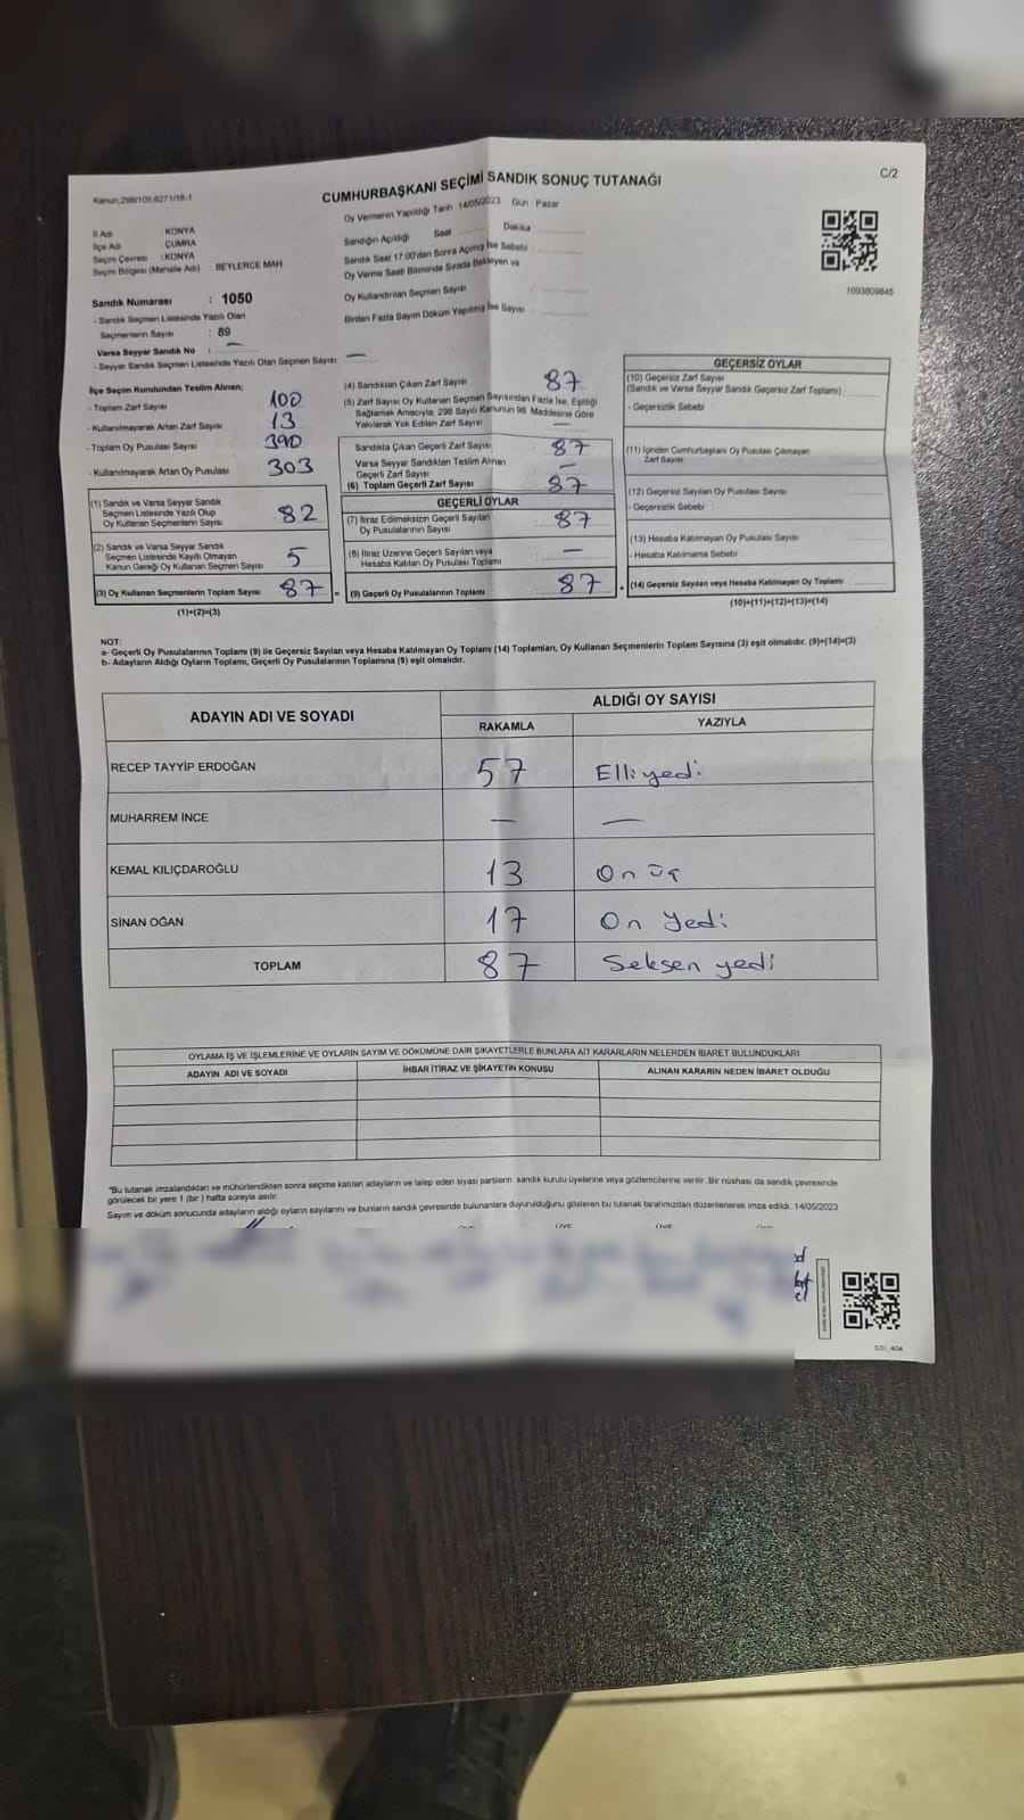 Kanun:298/105,6271/18-1
CUMHURBAŞKANI SEÇİMİ SANDIK SONUÇ TUTANAĞI
C/2
Oy Vermenin Yapıldığı Tarih 14/05/2023 Gün : Pazar
İl Adı KONYA
İlçe Adı ÇUMRA
Seçim Çevresi : KONYA
Seçim Bölgesi (Mahalle Adı) : BEYLERCE MAH
Sandığın Açıldığı Saat Dakika
Sandık Saat 17:00'dan Sonra Açılmış İse Sebebi
Oy Verme Saati Bitiminde Sırada Bekleyen ve
Oy Kullandırılan Seçmen Sayısı
Birden Fazla Sayım Döküm Yapılmış İse Sayısı
1093809845
Sandık Numarası : 1050
- Sandık Seçmen Listesinde Yazılı Olan
Seçmenlerin Sayısı : 89
Varsa Seyyar Sandık No : —
- Seyyar Sandık Seçmen Listesinde Yazılı Olan Seçmen Sayısı : —
İlçe Seçim Kurulundan Teslim Alınan;
- Toplam Zarf Sayısı 100
- Kullanılmayarak Artan Zarf Sayısı 13
- Toplam Oy Pusulası Sayısı 390
- Kullanılmayarak Artan Oy Pusulası 303
(1) Sandık ve Varsa Seyyar Sandık
Seçmen Listesinde Yazılı Olup
Oy Kullanan Seçmenlerin Sayısı 82
(2) Sandık ve Varsa Seyyar Sandık
Seçmen Listesinde Kayıtlı Olmayan
Kanun Gereği Oy Kullanan Seçmen Sayısı 5
(3) Oy Kullanan Seçmenlerin Toplam Sayısı 87 =
(1)+(2)=(3)
(4) Sandıktan Çıkan Zarf Sayısı 87
(5) Zarf Sayısı Oy Kullanan Seçmen Sayısından Fazla İse, Eşitliği
Sağlamak Amacıyla, 298 Sayılı Kanunun 98. Maddesine Göre
Yakılarak Yok Edilen Zarf Sayısı —
Sandıkta Çıkan Geçerli Zarf Sayısı 87
Varsa Seyyar Sandıktan Teslim Alınan
Geçerli Zarf Sayısı —
(6) Toplam Geçerli Zarf Sayısı 87
GEÇERLİ OYLAR
(7) İtiraz Edilmeksizin Geçerli Sayılan
Oy Pusulalarının Sayısı 87
(8) İtiraz Üzerine Geçerli Sayılan veya
Hesaba Katılan Oy Pusulası Toplamı —
(9) Geçerli Oy Pusulalarının Toplamı 87 +
GEÇERSİZ OYLAR
(10) Geçersiz Zarf Sayısı
(Sandık ve Varsa Seyyar Sandık Geçersiz Zarf Toplamı)
- Geçersizlik Sebebi
(11) İçinden Cumhurbaşkanı Oy Pusulası Çıkmayan
Zarf Sayısı
(12) Geçersiz Sayılan Oy Pusulası Sayısı
- Geçersizlik Sebebi
(13) Hesaba Katılmayan Oy Pusulası Sayısı
- Hesaba Katılmama Sebebi
(14) Geçersiz Sayılan veya Hesaba Katılmayan Oy Toplamı
(10)+(11)+(12)+(13)=(14)
NOT:
a- Geçerli Oy Pusulalarının Toplamı (9) ile Geçersiz Sayılan veya Hesaba Katılmayan Oy Toplamı (14) Toplamları, Oy Kullanan Seçmenlerin Toplam Sayısına (3) eşit olmalıdır. (9)+(14)=(3)
b- Adayların Aldığı Oyların Toplamı, Geçerli Oy Pusulalarının Toplamına (9) eşit olmalıdır.
ADAYIN ADI VE SOYADI
ALDIĞI OY SAYISI
RAKAMLA YAZIYLA
RECEP TAYYİP ERDOĞAN 57 Elliyedi
MUHARREM İNCE — —
KEMAL KILIÇDAROĞLU 13 On üç
SİNAN OĞAN 17 On Yedi
TOPLAM 87 Seksen yedi
OYLAMA İŞ VE İŞLEMLERİNE VE OYLARIN SAYIM VE DÖKÜMÜNE DAİR ŞİKAYETLERLE BUNLARA AİT KARARLARIN NELERDEN İBARET BULUNDUKLARI
ADAYIN ADI VE SOYADI İHBAR İTİRAZ VE ŞİKAYETİN KONUSU ALINAN KARARIN NEDEN İBARET OLDUĞU
"Bu tutanak imzalandıktan ve mühürlendikten sonra seçime katılan adayların ve talep eden siyasi partilerin sandık kurulu üyelerine veya gözlemcilerine verilir. Bir nüshası da sandık çevresinde
görülecek bir yere 1 (bir) hafta süreyle asılır.
Sayım ve döküm sonucunda adayların aldığı oyların sayılarını ve bunların sandık çevresinde bulunanlara duyurulduğunu gösteren bu tutanak tarafımızdan düzenlenerek imza edildi. 14/05/2023